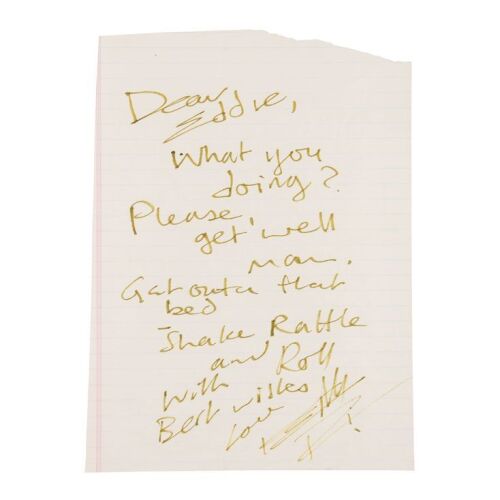 Dear
Eddie,
What you
doing?
Please
get well
man.
Get outta that
bed
Shake Rattle
and Roll
With
Best wishes
Love